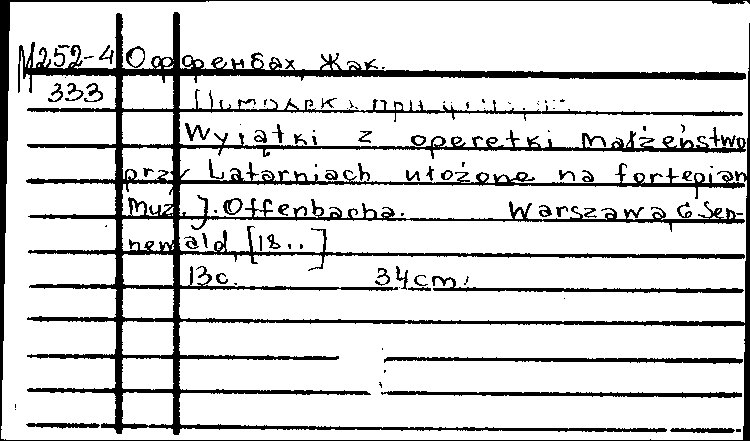 М252-4 Оффенбах, Жак.
333
Wyjątki z operetki Małżeństwo
przy Latarniach ułożone na fortepian
Muz. J. Offenbacha. Warszawa, G Sen-
newald, [18..]
13с. 34cm.